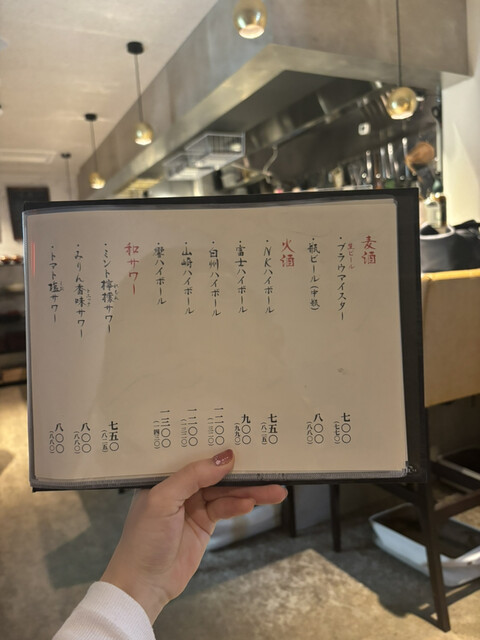 麦酒
生ビール
・ブラウマイスター 七〇〇（七七〇）
・瓶ビール（中瓶） 八〇〇（八八〇）
火酒
・NKハイボール 七五〇（八二五）
・富士ハイボール 九〇〇（九九〇）
・白州ハイボール 一二〇〇（一三二〇）
・山崎ハイボール 一二〇〇（一三二〇）
・響ハイボール 一三〇〇（一四三〇）
和サワー
・ミント檸檬サワー 七五〇（八二五）
・みりん香味サワー 八〇〇（八八〇）
・トマト塩サワー 八〇〇（八八〇）